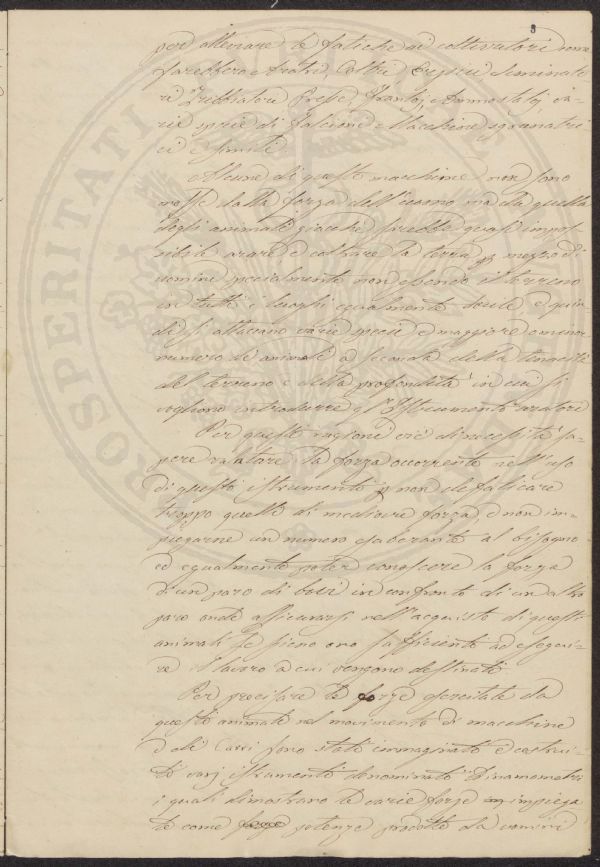 3
per alleviare le fatiche ai coltivatori come
sarebbero Aratri, Coltri Erpici Seminato
ri Trebbiatori Presse, Frantoj, Ammostatoj va-
rie specie di Falcione e Macchine sgranatri
ci e simili
Alcune di queste macchine non sono
mosse dalla forza dell'uomo ma da quella
degli animali giacchè sarebbe quasi impos-
sibile arare e coltrare la terra p mezzo di
uomini specialmente non essendo il terreno
in tutti i luoghi egualmente docile e quin
di si attaccano varie specie e maggiore o minor
numero di animali a seconda della tenacità
del terreno e della profondità in cui si
vogliono introdurre gl'Istrumenti aratori
Per queste ragioni vi è di necessità sa-
pere valutare la forza occorrente nell'uso
di questi istrumenti p non defaticare
troppo quelli di mediocre forza, e non im-
piegarne un numero esuberante al bisogno
ed egualmente poter conoscere la forza
di un paro di bovi in confronto di un altro
paro onde assicurarsi nell'acquisto di questi
animali se sieno o no sufficienti ad esegui-
re il lavoro a cui vengono destinati
Per precisare le forze esercitate da
questi animali nel movimento di macchine
e di Carri sono stati immaginati e costrui-
ti varj istrumenti denominati Dinamometri
i quali dimostrano le varie forze impiega
te come potenze prodotte da uomini
PROSPERITATI